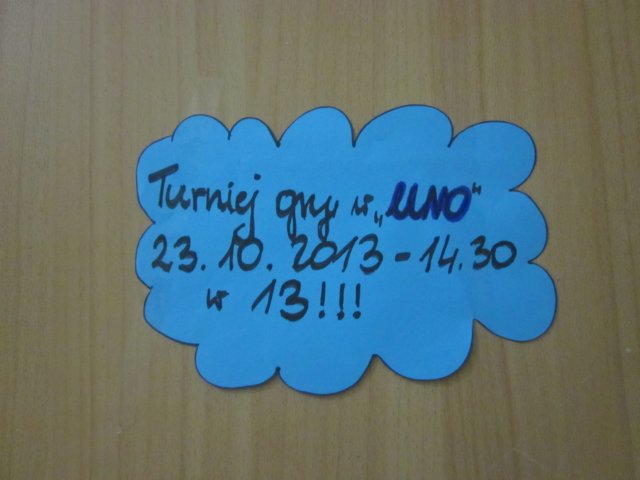 Turniej gry w „UNO"
23.10.2013 - 14.30
w 13!!!